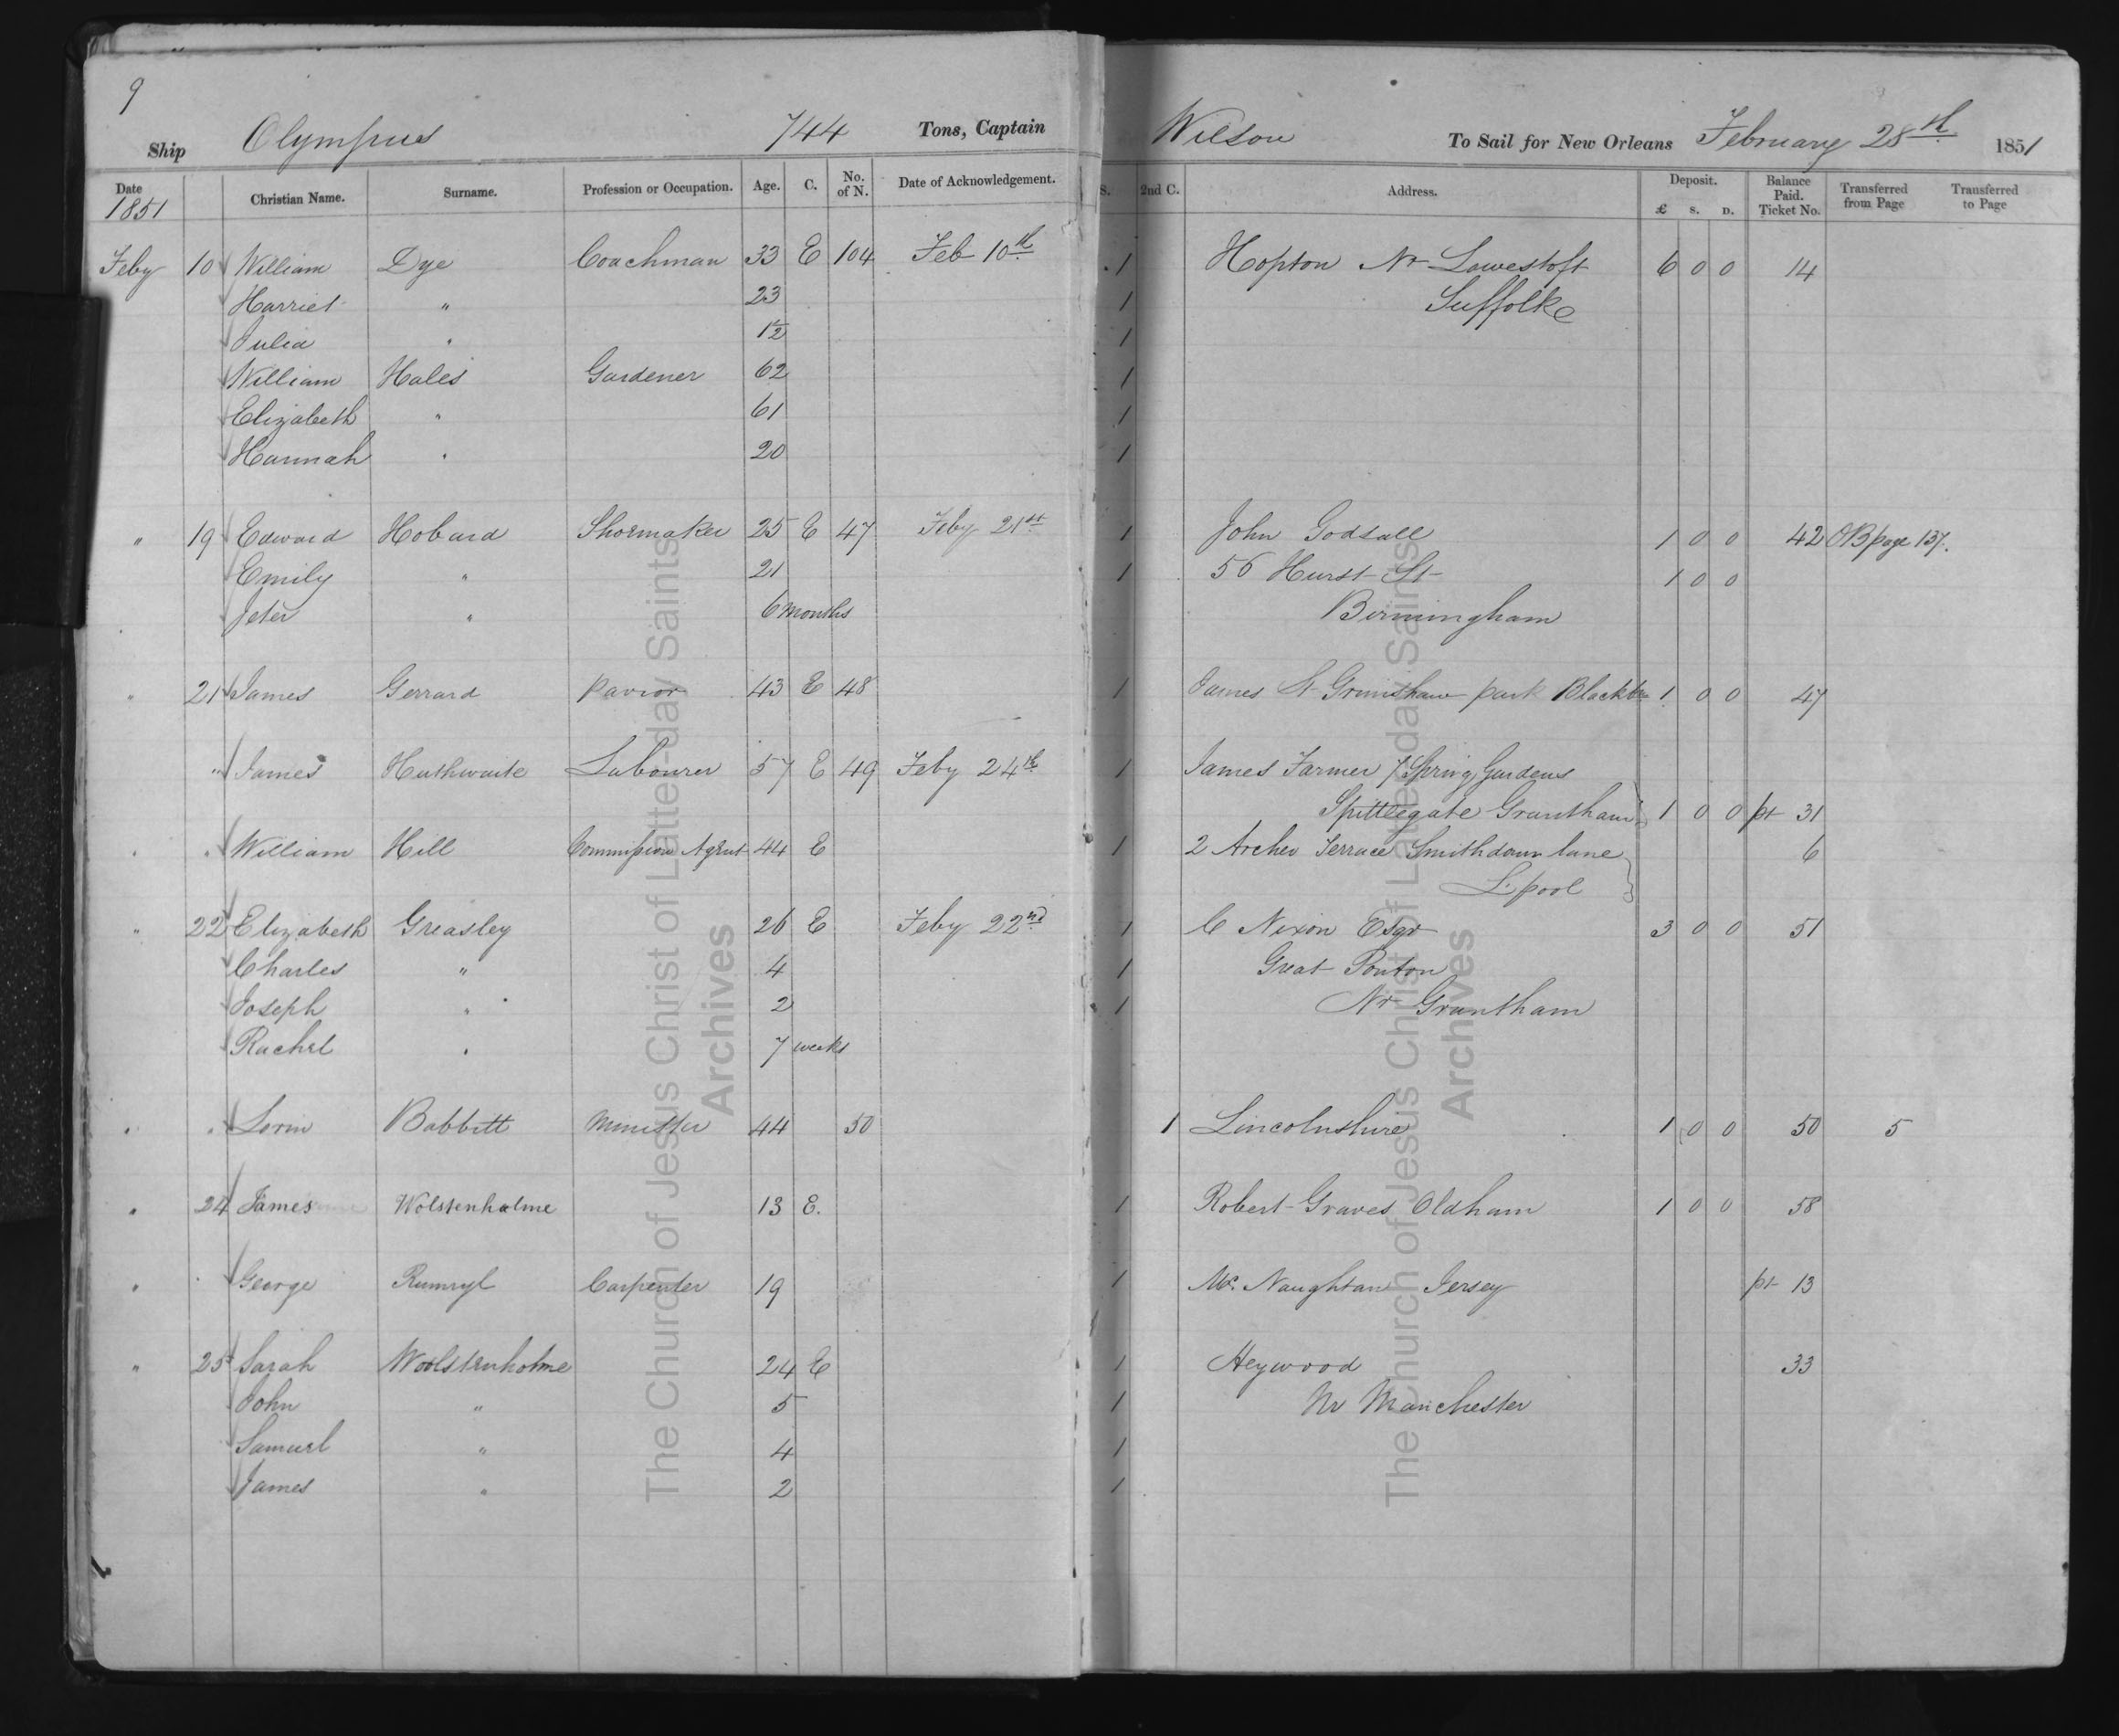 9
Ship Olympus 744 Tons, Captain Wilson To Sail for New Orleans February 28th 1851
Date 1851 Christian Name. Surname. Profession or Occupation. Age. C. No. of N. Date of Acknowledgement. S. 2nd C. Address. Deposit. £ s. D. Balance Paid. Ticket No. Transferred from Page Transferred to Page
Feby 10 William Dye Coachman 33 E 104 Feb 10th 1 Hopton Nr Lowestoft 6 0 0 14
Harriet " 23 1 Suffolk
Julia " 1½ 1
William Hales Gardener 62 1
Elizabeth " 61 1
Hannah " 20 1
" 19 Edward Hobard Shoemaker 25 E 47 Feby 21st 1 John Godsall 1 0 0 42 OB page 137.
Emily " 21 1 56 Hurst St 1 0 0
Jeter " 6 months Birmingham
" 21 James Gerrard pavior 43 E 48 1 James St Grimshaw park Blackbn 1 0 0 47
" James Huthwaite Labourer 57 E 49 Feby 24th 1 James Farmer 7 Spring Gardens
Spittlegate Grantham 1 0 0 pt 31
" " William Hill Commission Agent 44 E 1 2 Archer Terrace Smithdown lane 6
L.pool
" 22 Elizabeth Greasley 26 E Feby 22nd 1 C Nixon Esqr 3 0 0 51
Charles " 4 1 Great Ponton
Joseph " 2 1 Nr Grantham
Rachel " 7 weeks
" " Lorin Babbitt Minister 44 50 1 Lincolnshire 1 0 0 50 5
" 24 James Wolstenholme 13 E. 1 Robert Graves Oldham 1 0 0 58
" " George Rumryl Carpenter 19 1 Mc. Naughtan Jersey pt 13
" 25 Sarah Woolstenholme 24 E 1 Heywood 33
John " 5 1 Nr Manchester
Samuel " 4 1
James " 2 1
The Church of Jesus Christ of Latter-day Saints
Archives
The Church of Jesus Christ of Latter-day Saints
Archives